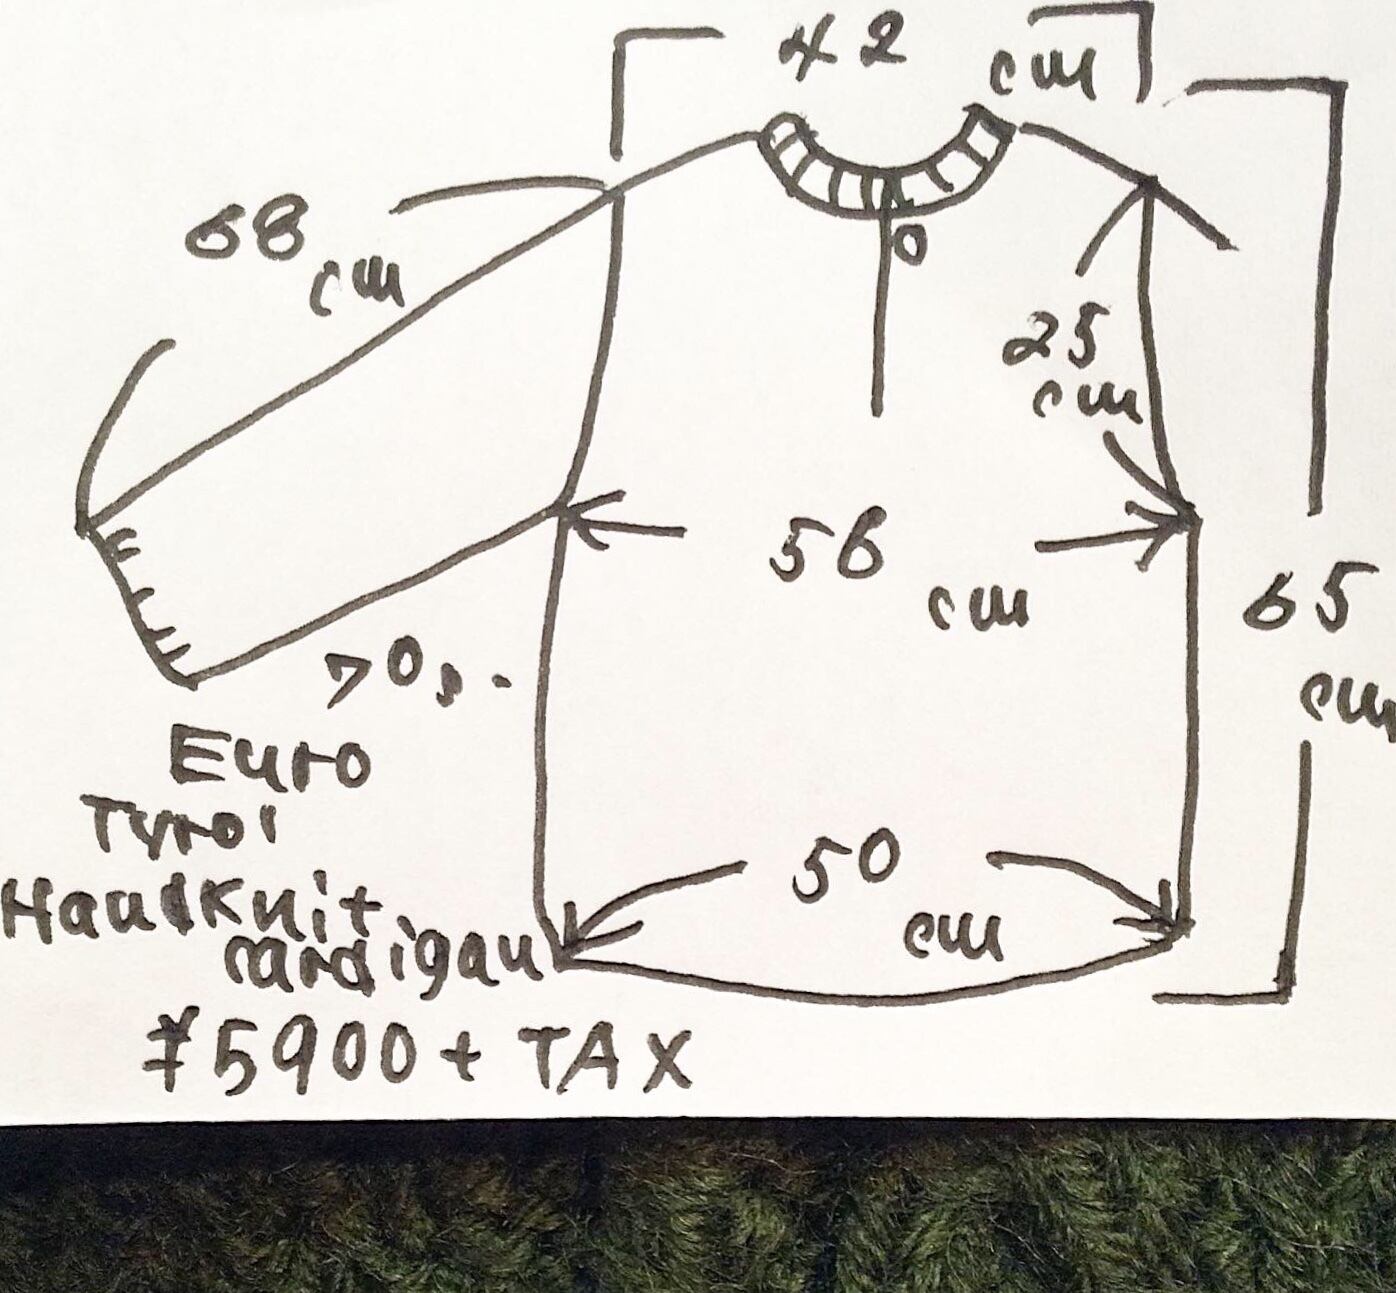 42 cm
68 cm
25 cm
56 cm
65 cm
70s.
Euro
Tyrol
Handknit
cardigan
50 cm
¥5900+TAX